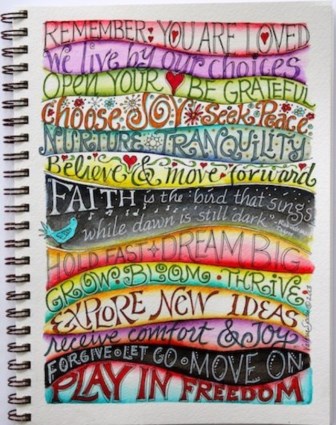 REMEMBER: YOU ARE LOVED
we live by our choices
OPEN YOUR ♥ BE GRATEFUL
Choose JOY * Seek Peace
NURTURE TRANQUILITY
Believe & move forward
FAITH is the bird that sings
while dawn is still dark
HOLD FAST • DREAM BIG
GROW • BLOOM • THRIVE
EXPLORE NEW IDEAS
receive comfort & JOY
FORGIVE • LET GO • MOVE ON
PLAY IN FREEDOM